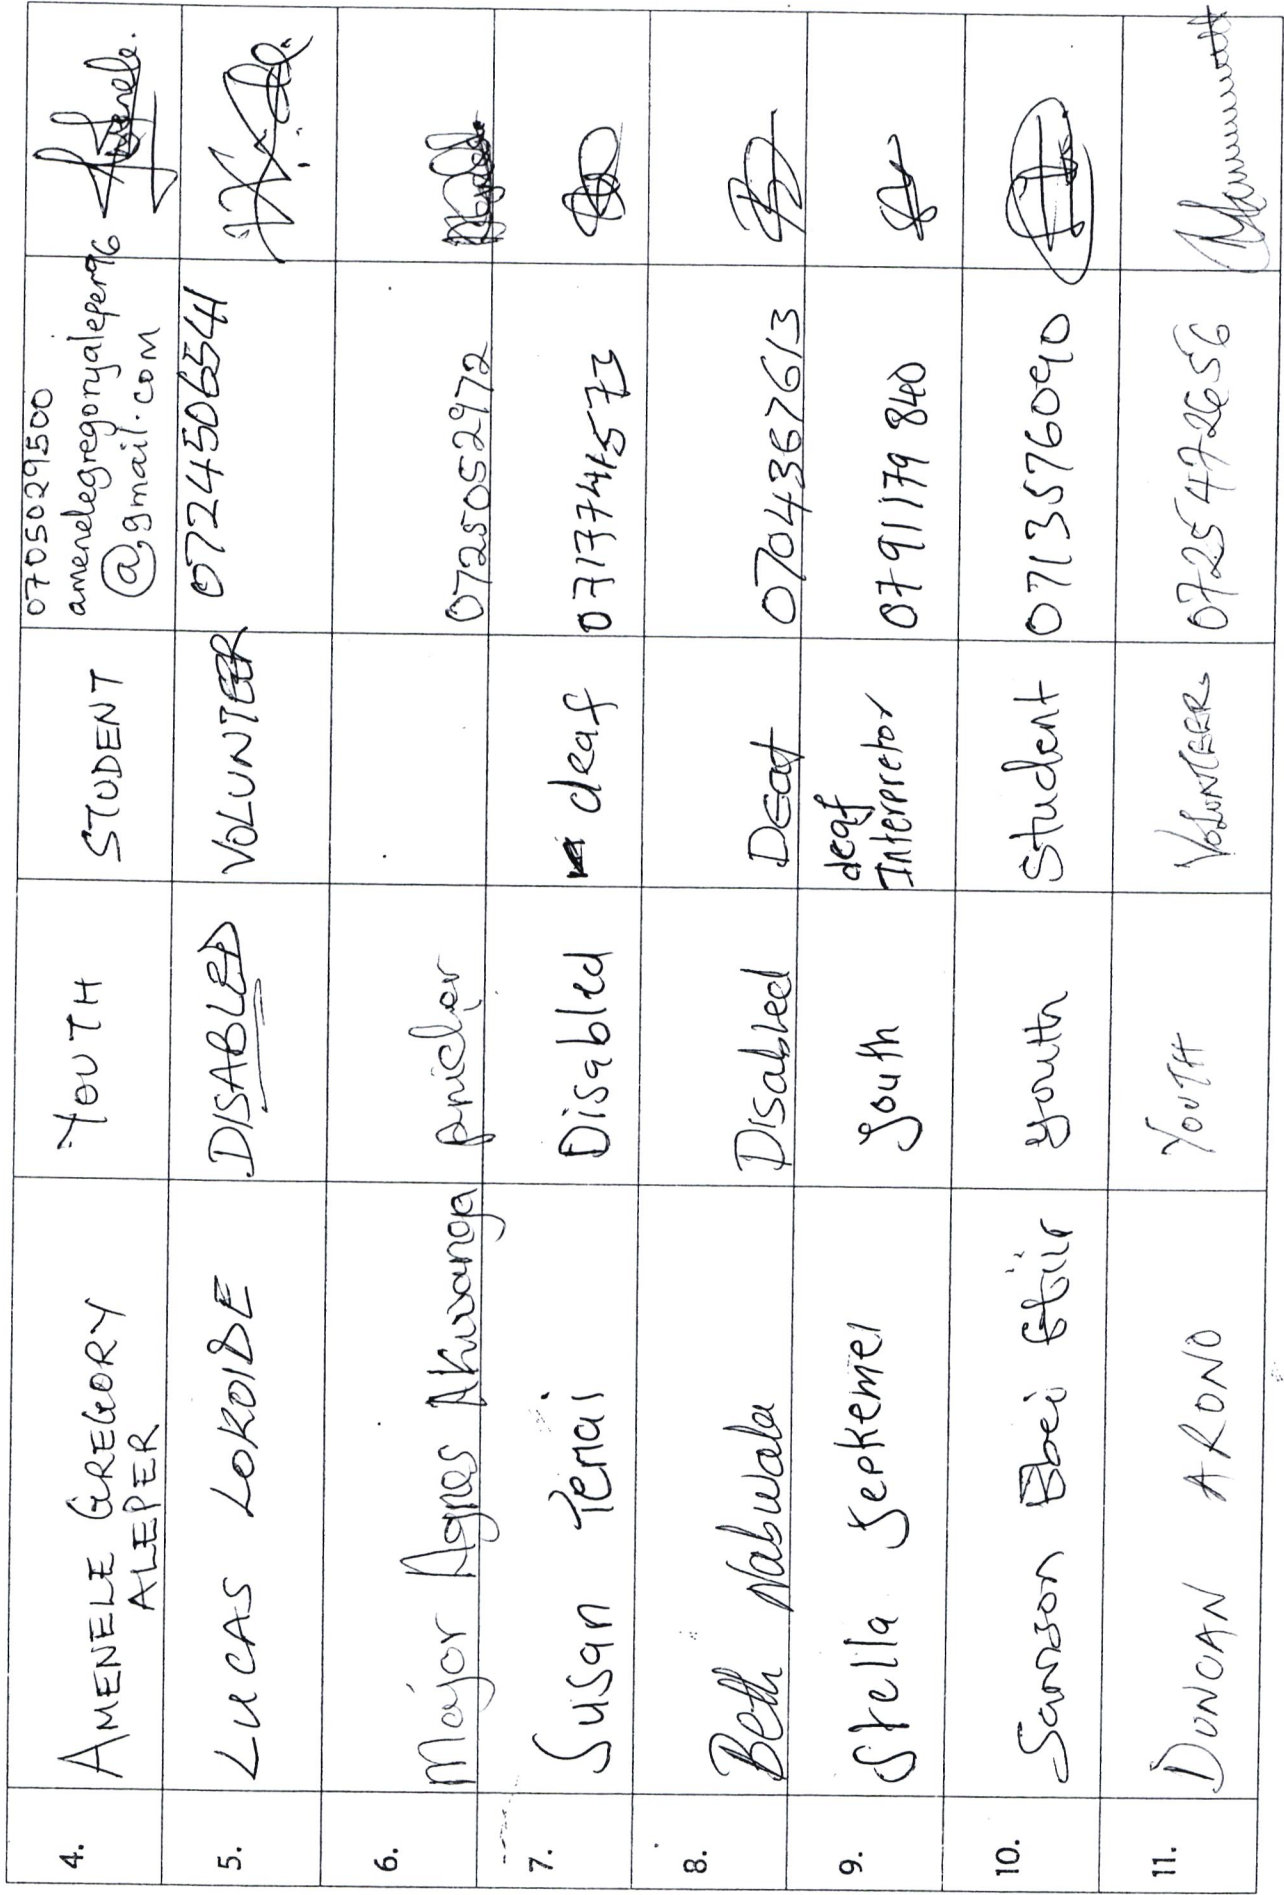 4. AMENELE GREGORY YOUTH STUDENT 0705029500
ALEPER amenelegregoryaleper96
@gmail.com
5. LUCAS LOKOIDE DISABLED VOLUNTEER 0724506541
6. Major Agnes Akwanga 0725052972
7. Susan Temai Disabled deaf 0717741573
8. Beth Nabwala Disabled Deaf 0704367613
9. Stella Jepkemei youth deaf
Interpretor 0791179840
10. Samson Ebei youth Student 0713576090
11. DUNCAN ARONO YOUTH VOLUNTEER 0725472656